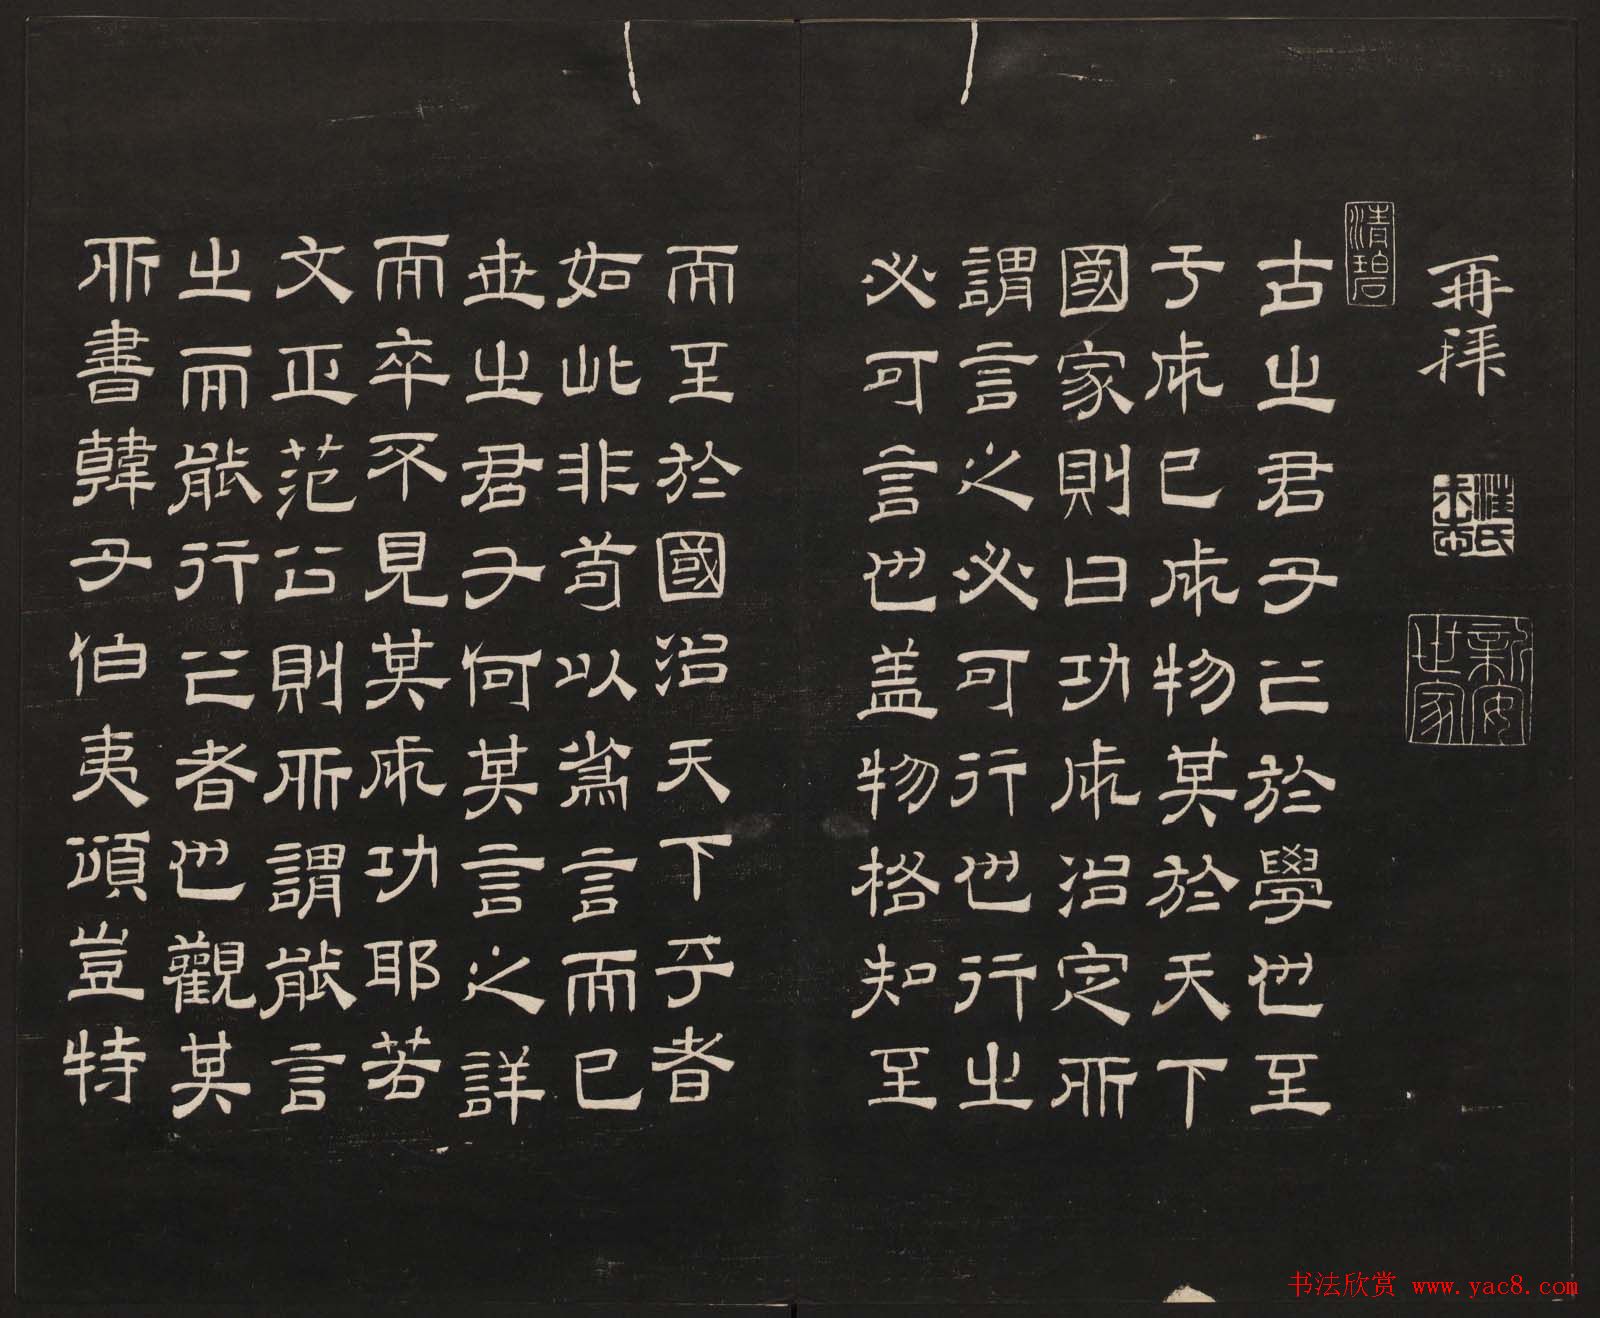 再拜
汪氏
新安世家
清碧
古之君子之於學也至
于成己成物其於天下
國家則曰功成治定所
謂言之必可行也行之
必可言也盖物格知至
而至於國治天下平者
如此非苟以為言而已
世之君子何其言之詳
而卒不見其成功耶若
文正范公則所謂能言
之而能行之者也觀其
所書韓子伯夷頌豈特
书法欣赏 www.yac8.com